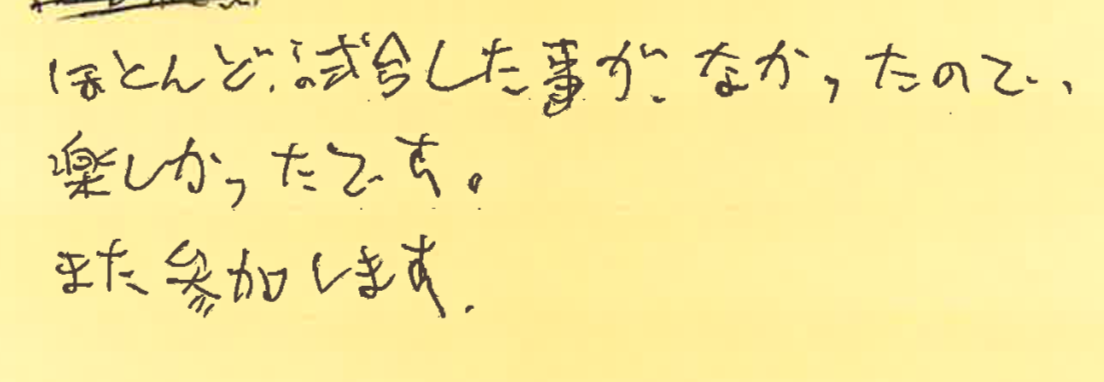 ほとんど試合した事がなかったので、
楽しかったです。
また参加します.